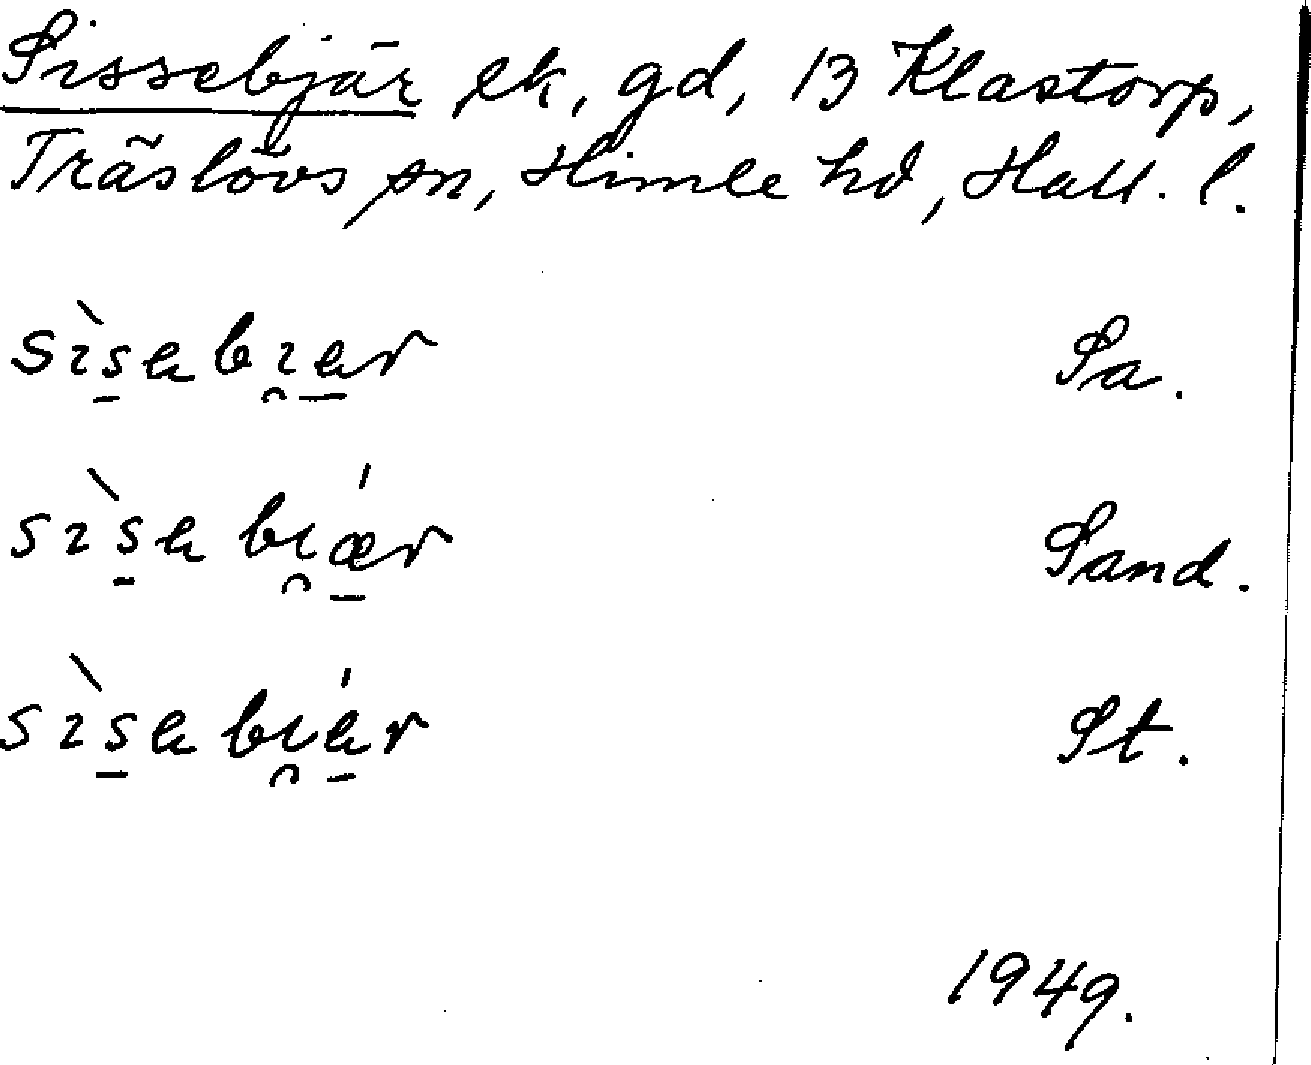 Sissebjär ek, gd, 13 Klastorp,
Träslövs sn, Himle hd, Hall. l.
sìs̠ebı̯e̠r Sa.
sìs̠e bı̯ǽ̠r Sand.
sìs̠e bı̯é̠r St.
1949.